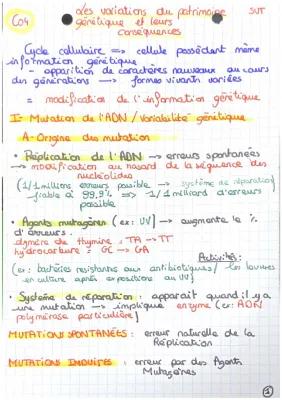 C04
Les variations du patrimoine
SVT
génétique et leurs
conséquences
Cycle cellulaire => cellule possédant même
information génétique
- apparition de caractères nouveaux au cours
des générations -> formes vivants variées
= modification de l'information génétique
I- Mutation de l'ADN / Variabilité génétique
A- Origine des mutation
• Réplication de l'ADN -> erreurs spontanées
-> modification au hasard de la séquence des
nucléotides
(1/1 millions erreurs possible -> système de réparation)
fiable à 99.9% => 1/1 milliard d'erreurs
possible
• Agents mutagènes (ex: UV) -> augmente le %
d'erreurs.
dimère de thymine : TA -> TT
hydrocarbure : GC -> GA
Activités :
(ex: bactéries résistantes aux antibiotiques / les levures
en culture après expositions au UV)
• Système de réparation : apparait quand il y a
une mutation -> implique enzyme (ex: ADN
polymérase particulière)
MUTATIONS SPONTANÉES : erreur naturelle de la
Réplication
MUTATIONS INDUITES : erreur par des Agents
Mutagènes
1